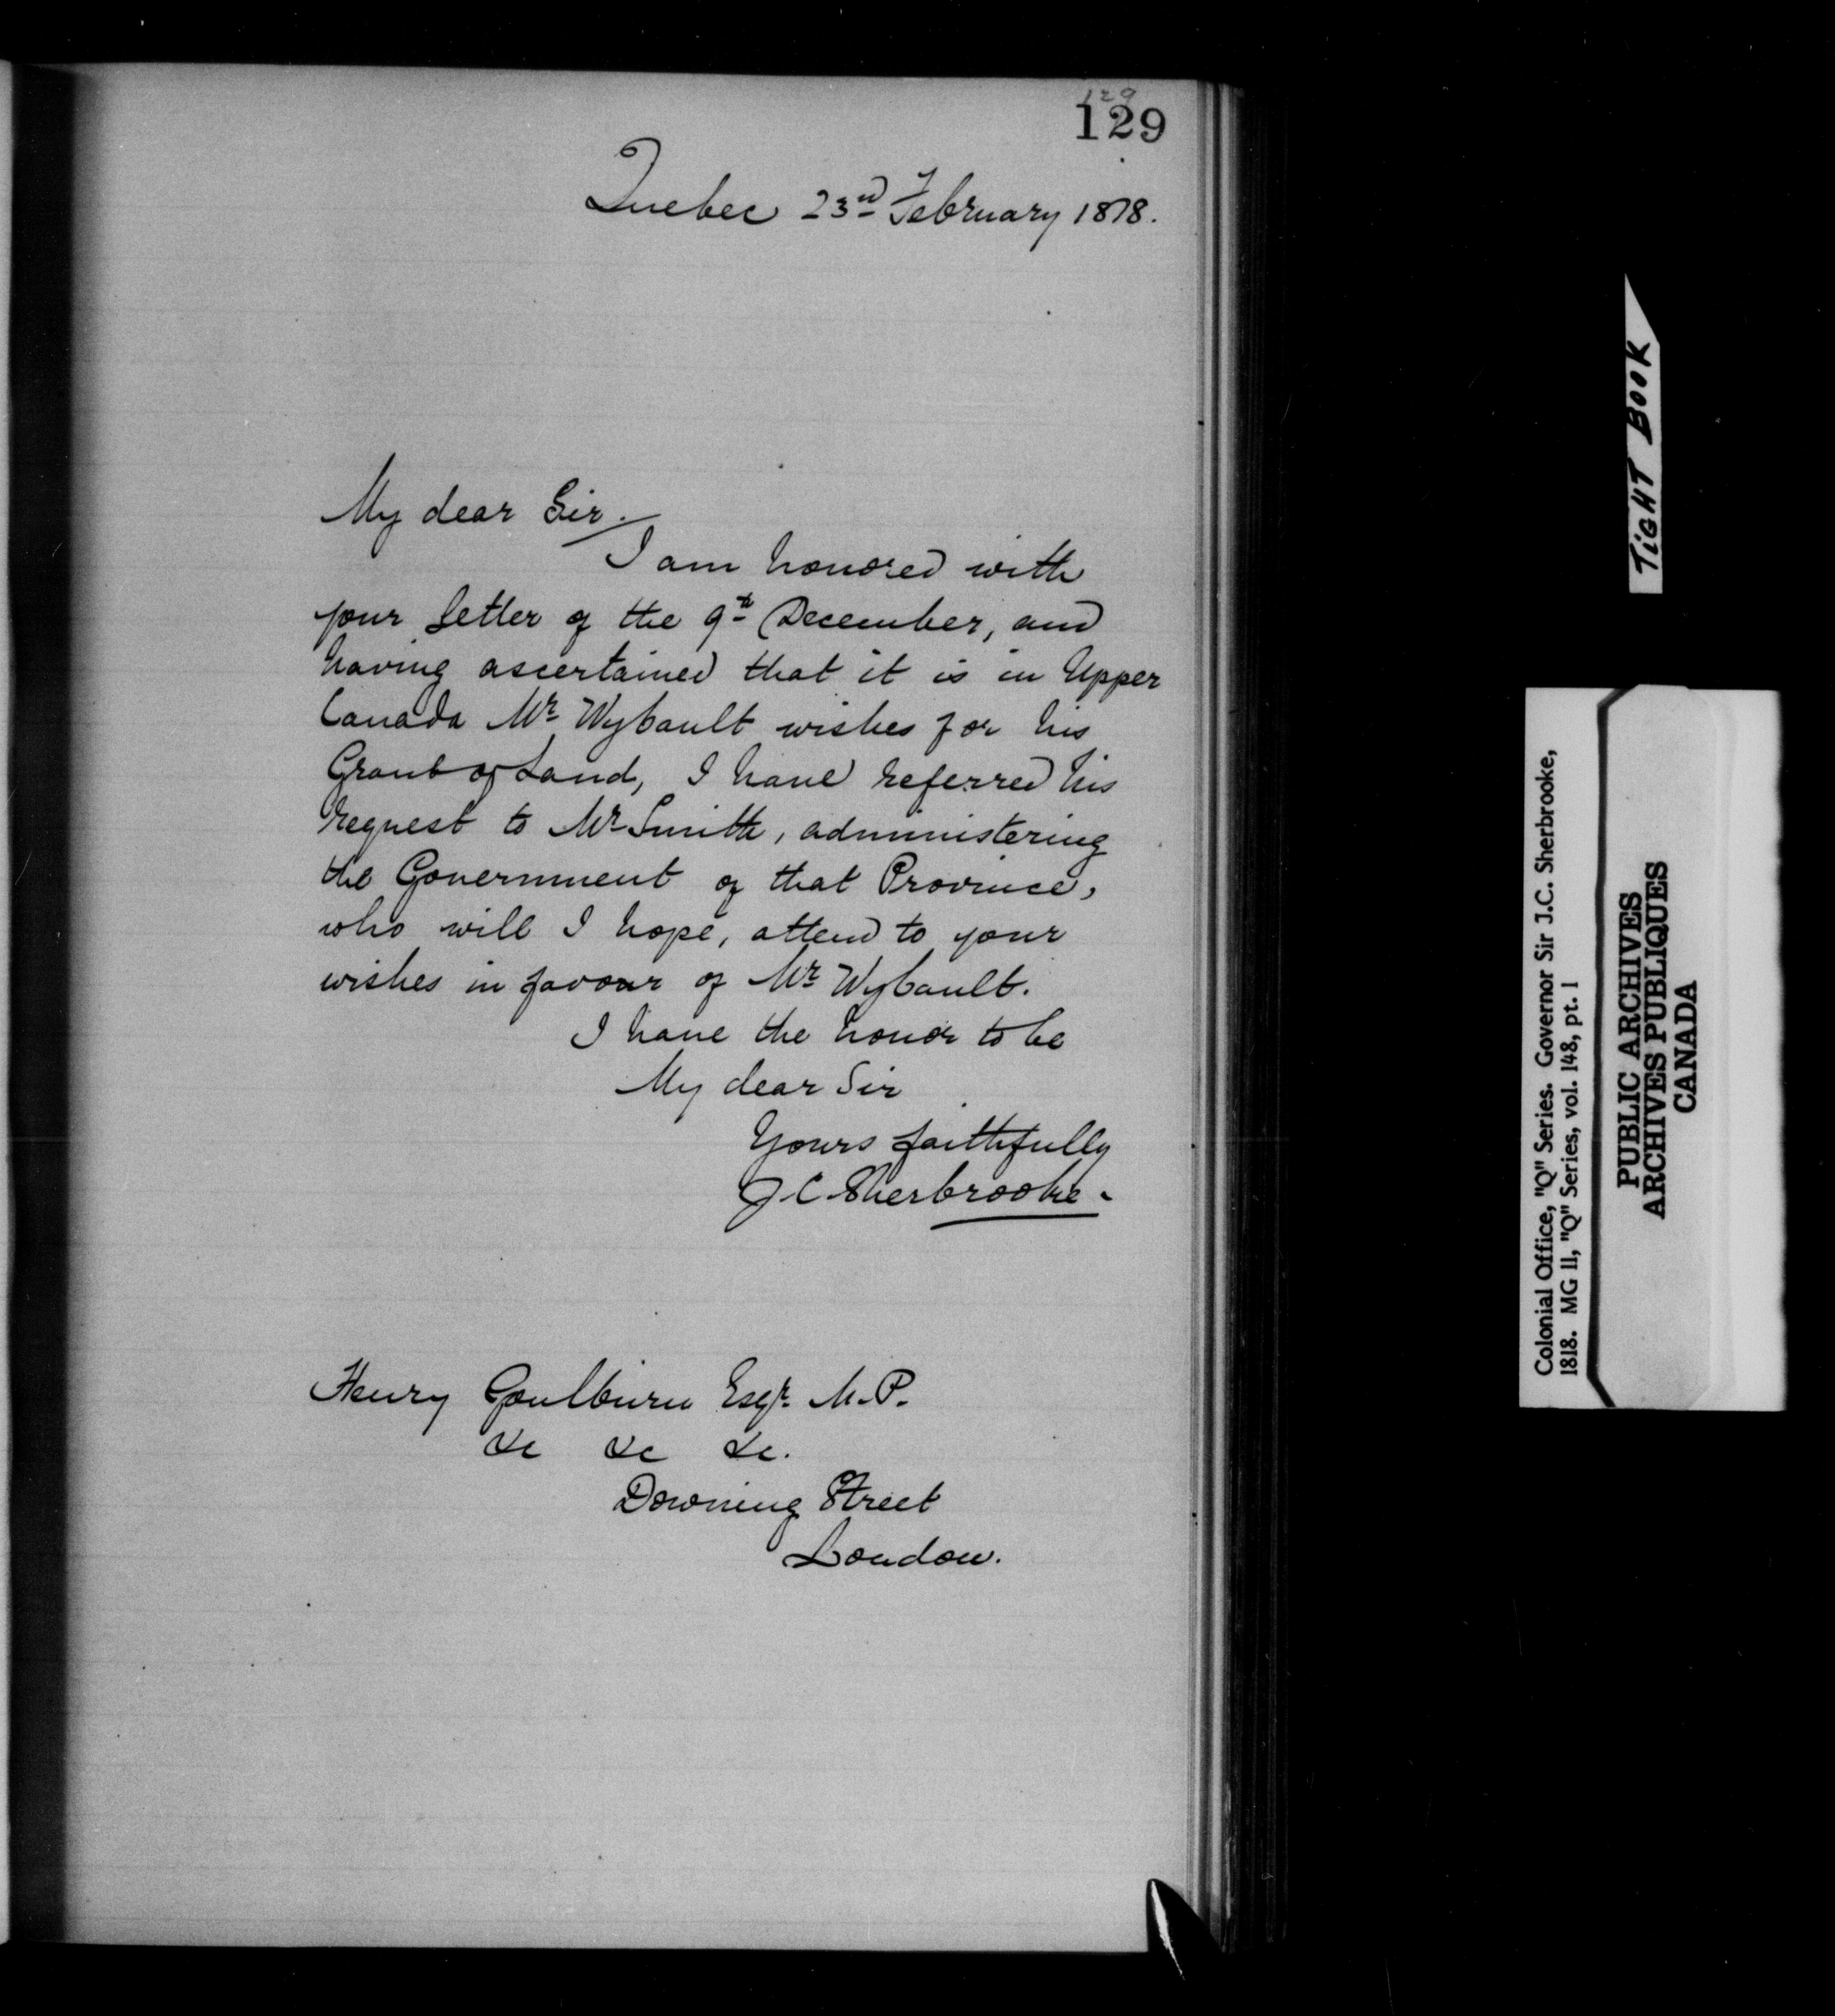 129
129
Quebec 23rd February 1818.
My dear Sir.
I am honored with
your letter of the 9th December, and
having ascertained that it is in Upper
Canada Mr Wybault wishes for his
Grant of Land, I have referred his
request to Mr Smith, administering
the Government of that Province,
who will I hope, attend to your
wishes in favour of Mr Wybault.
I have the honor to be
My dear Sir
Yours faithfully
J. C. Sherbrooke.
Henry Goulburn Esqr. M.P.
&c &c &c.
Downing Street
London.
TIGHT BOOK
Colonial Office, "Q" Series. Governor Sir J.C. Sherbrooke,
1818. MG 11, "Q" Series, vol. 148, pt. 1
PUBLIC ARCHIVES
ARCHIVES PUBLIQUES
CANADA